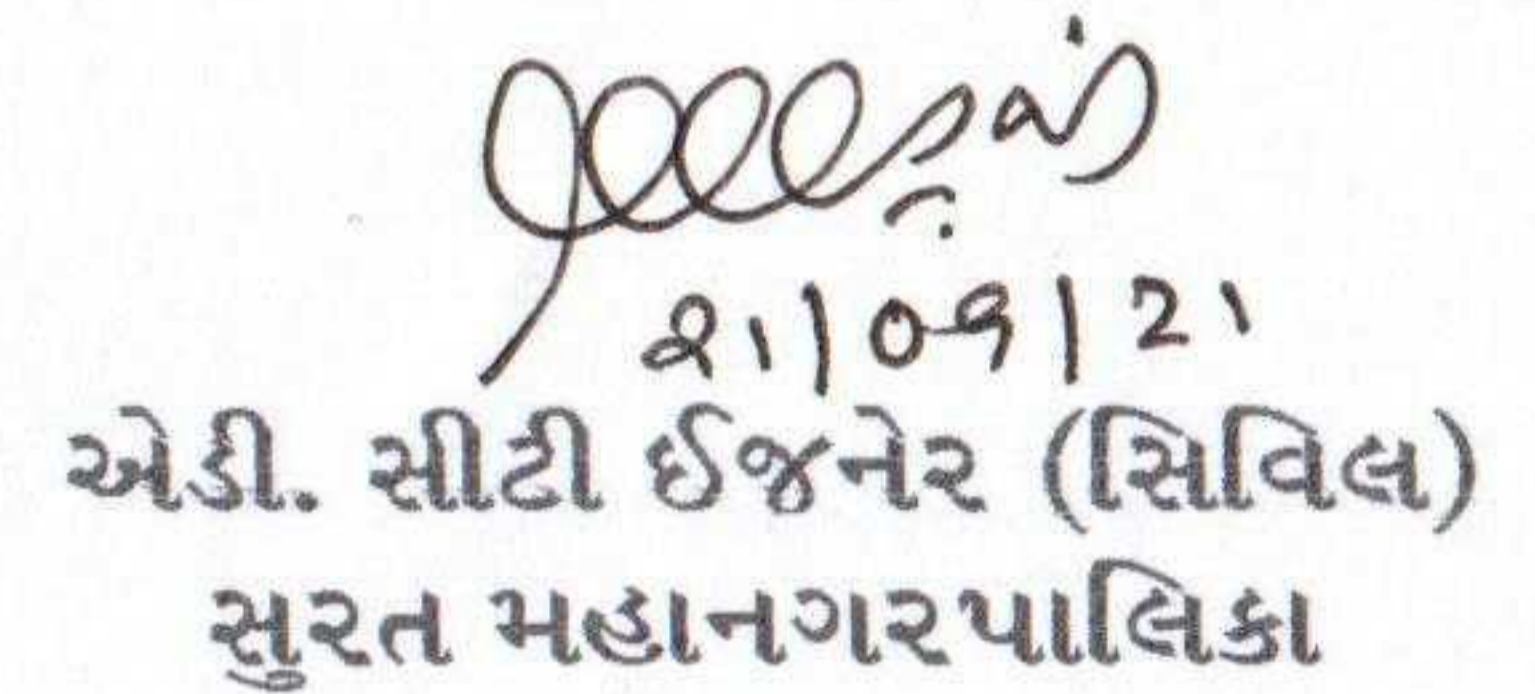 21/09/21
એડી. સીટી ઈજનેર (સિવિલ)
સુરત મહાનગરપાલિકા